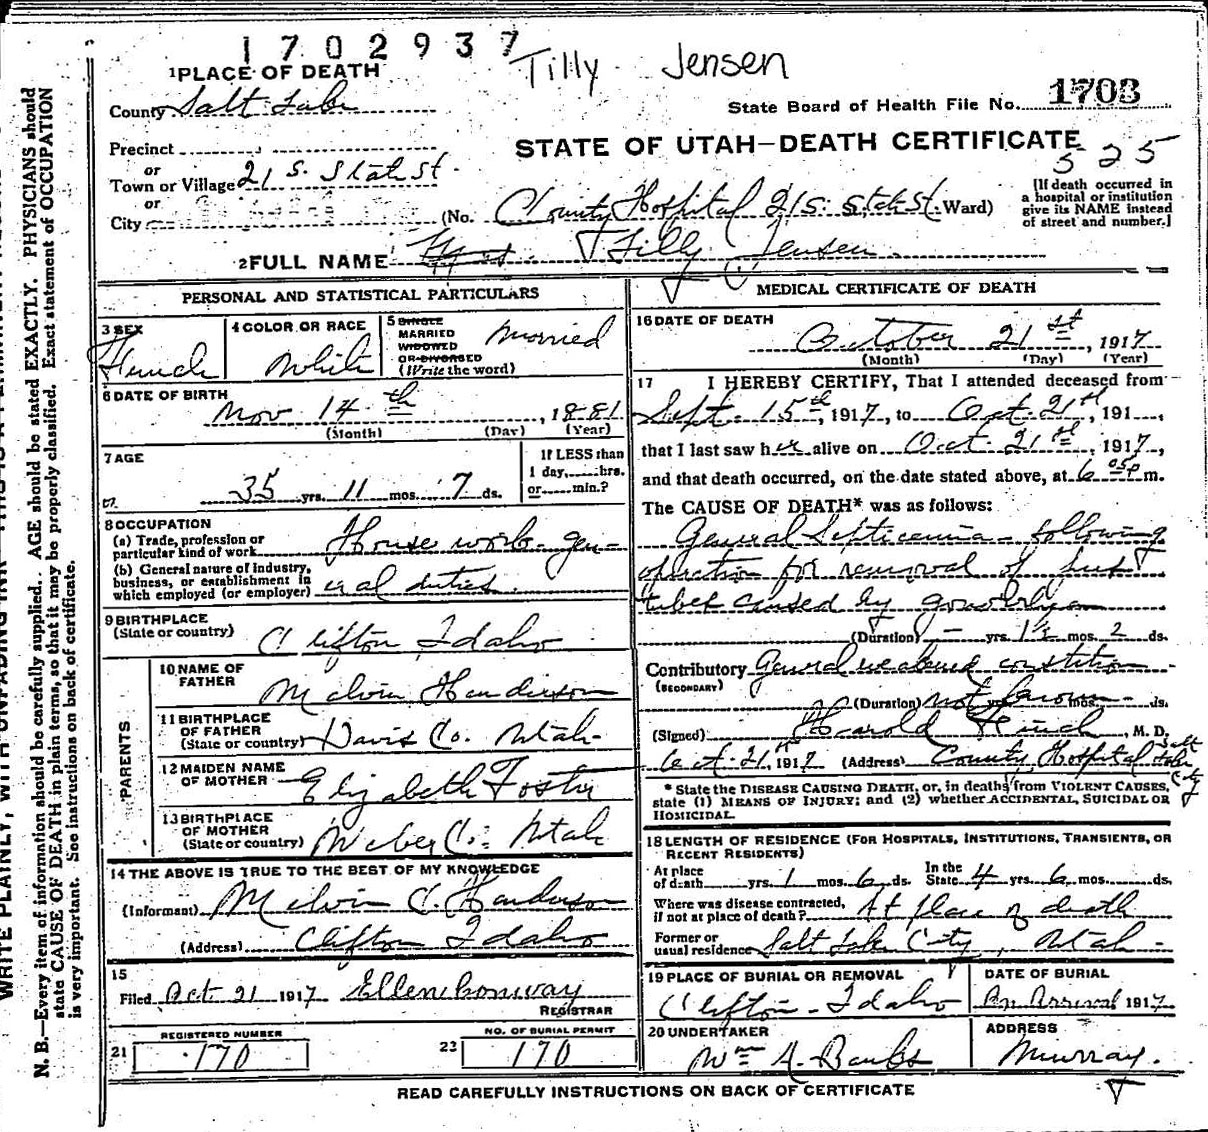 1702937
Tilly Jensen
1 PLACE OF DEATH
County Salt Lake
State Board of Health File No. 1703
Precinct
or
Town or Village 21 S. State St.
or
City
STATE OF UTAH—DEATH CERTIFICATE
525
(No. County Hospital 21 S. State St. Ward)
[If death occurred in
a hospital or institution
give its NAME instead
of street and number.]
2 FULL NAME Tilly Jensen
PERSONAL AND STATISTICAL PARTICULARS
3 SEX
4 COLOR OR RACE White
5 SINGLE
MARRIED
WIDOWED
OR DIVORCED
(Write the word)
Married
6 DATE OF BIRTH
Nov. 14th, 1881
(Month) (Day) (Year)
7 AGE
35 yrs. 11 mos. 7 ds.
If LESS than
1 day, hrs.
or min.?
8 OCCUPATION
(a) Trade, profession or
particular kind of work House work - gen-
(b) General nature of industry,
business, or establishment in
which employed (or employer) eral duties.
9 BIRTHPLACE
(State or country) Clifton Idaho
PARENTS
10 NAME OF
FATHER Melvin Henderson
11 BIRTHPLACE
OF FATHER
(State or country) Davis Co. Utah-
12 MAIDEN NAME
OF MOTHER Elizabeth Foster
13 BIRTHPLACE
OF MOTHER
(State or country) Weber Co. Utah
14 THE ABOVE IS TRUE TO THE BEST OF MY KNOWLEDGE
(Informant) Melvin C. Henderson
(Address) Clifton Idaho
15
Filed Oct 21 1917 Ellen Conway
REGISTRAR
REGISTERED NUMBER
21 170
NO. OF BURIAL PERMIT
22 170
MEDICAL CERTIFICATE OF DEATH
16 DATE OF DEATH
October 21st, 1917
(Month) (Day) (Year)
17 I HEREBY CERTIFY, That I attended deceased from
Sept. 15th, 1917, to Oct. 21st, 191 ,
that I last saw her alive on Oct. 21st, 1917,
and that death occurred, on the date stated above, at 6 05 p m.
The CAUSE OF DEATH* was as follows:
General Septicemia - following
operation for removal of
tubes caused by gonorrhyea
(Duration) - yrs. mos. 2 ds.
Contributory General weakened constitution
(SECONDARY)
(Duration) not known ds.
(Signed) Harold, M. D.
Oct. 21st, 1917 (Address) County Hospital Salt Lake City
* State the DISEASE CAUSING DEATH, or, in deaths from VIOLENT CAUSES,
state (1) MEANS OF INJURY; and (2) whether ACCIDENTAL, SUICIDAL OR
HOMICIDAL.
18 LENGTH OF RESIDENCE (FOR HOSPITALS, INSTITUTIONS, TRANSIENTS, OR
RECENT RESIDENTS)
At place
of death yrs. 1 mos. 6 ds. In the
State 4 yrs. 6 mos. ds.
Where was disease contracted,
if not at place of death? At place of death
Former or
usual residence Salt Lake City, Utah -
19 PLACE OF BURIAL OR REMOVAL
Clifton - Idaho
DATE OF BURIAL
On Arrival 1917
20 UNDERTAKER
Wm A. Banks
ADDRESS
Murray.
READ CAREFULLY INSTRUCTIONS ON BACK OF CERTIFICATE
N. B.—Every item of information should be carefully supplied. AGE should be stated EXACTLY. PHYSICIANS should
state CAUSE OF DEATH in plain terms, so that it may be properly classified. Exact statement of OCCUPATION
is very important. See instructions on back of certificate.